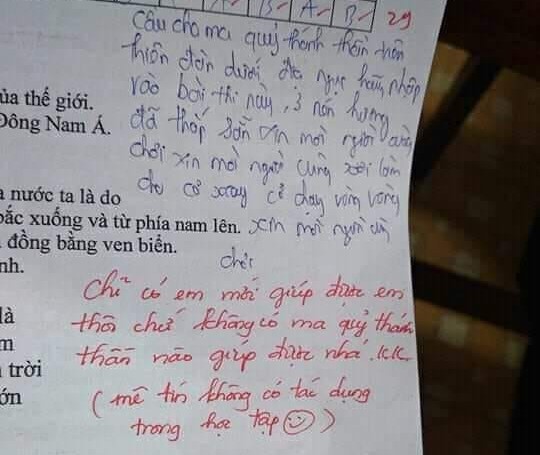 B A B 29
Cầu cho ma quỷ thánh thần trên
thiên đàn dưới địa ngục hãy nhập
vào bài thi này, 3 nén hương
đã thắp sẵn xin mời người cùng
chơi xin mời người cùng xơi làm
cho cỏ xoay cỏ chạy vòng vòng
xin mời người cùng
chơi
ủa thế giới.
Đông Nam Á.
a nước ta là do
bắc xuống và từ phía nam lên.
đồng bằng ven biển.
nh.
là
m
trời
ớn
Chỉ có em mới giúp được em
thôi chứ không có ma quỷ thánh
thần nào giúp được nhá. KK
(mê tín không có tác dụng
trong học tập ☺)